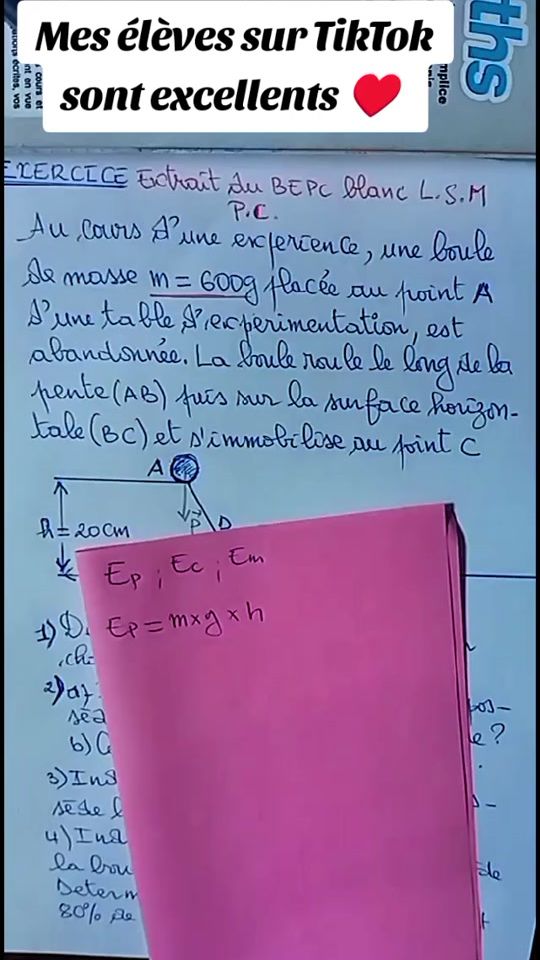 Mes élèves sur TikTok
sont excellents ❤️
ths
EXERCICE Extrait du BEPC blanc L.S.M
P.C.
Au cours d'une experience, une boule
de masse m = 600g placée au point A
d'une table d'experimentation, est
abandonnée. La boule roule le long de la
pente (AB) puis sur la surface horizon-
tale (BC) et s'immobilise au point C
A
P D
h = 20cm
Ep ; Ec ; Em
Ep = m x g x h
1) D
2) a)
pos-
b)
e ?
3) Ind
sède l
4) Ind
la bou
de
Determ
80% de